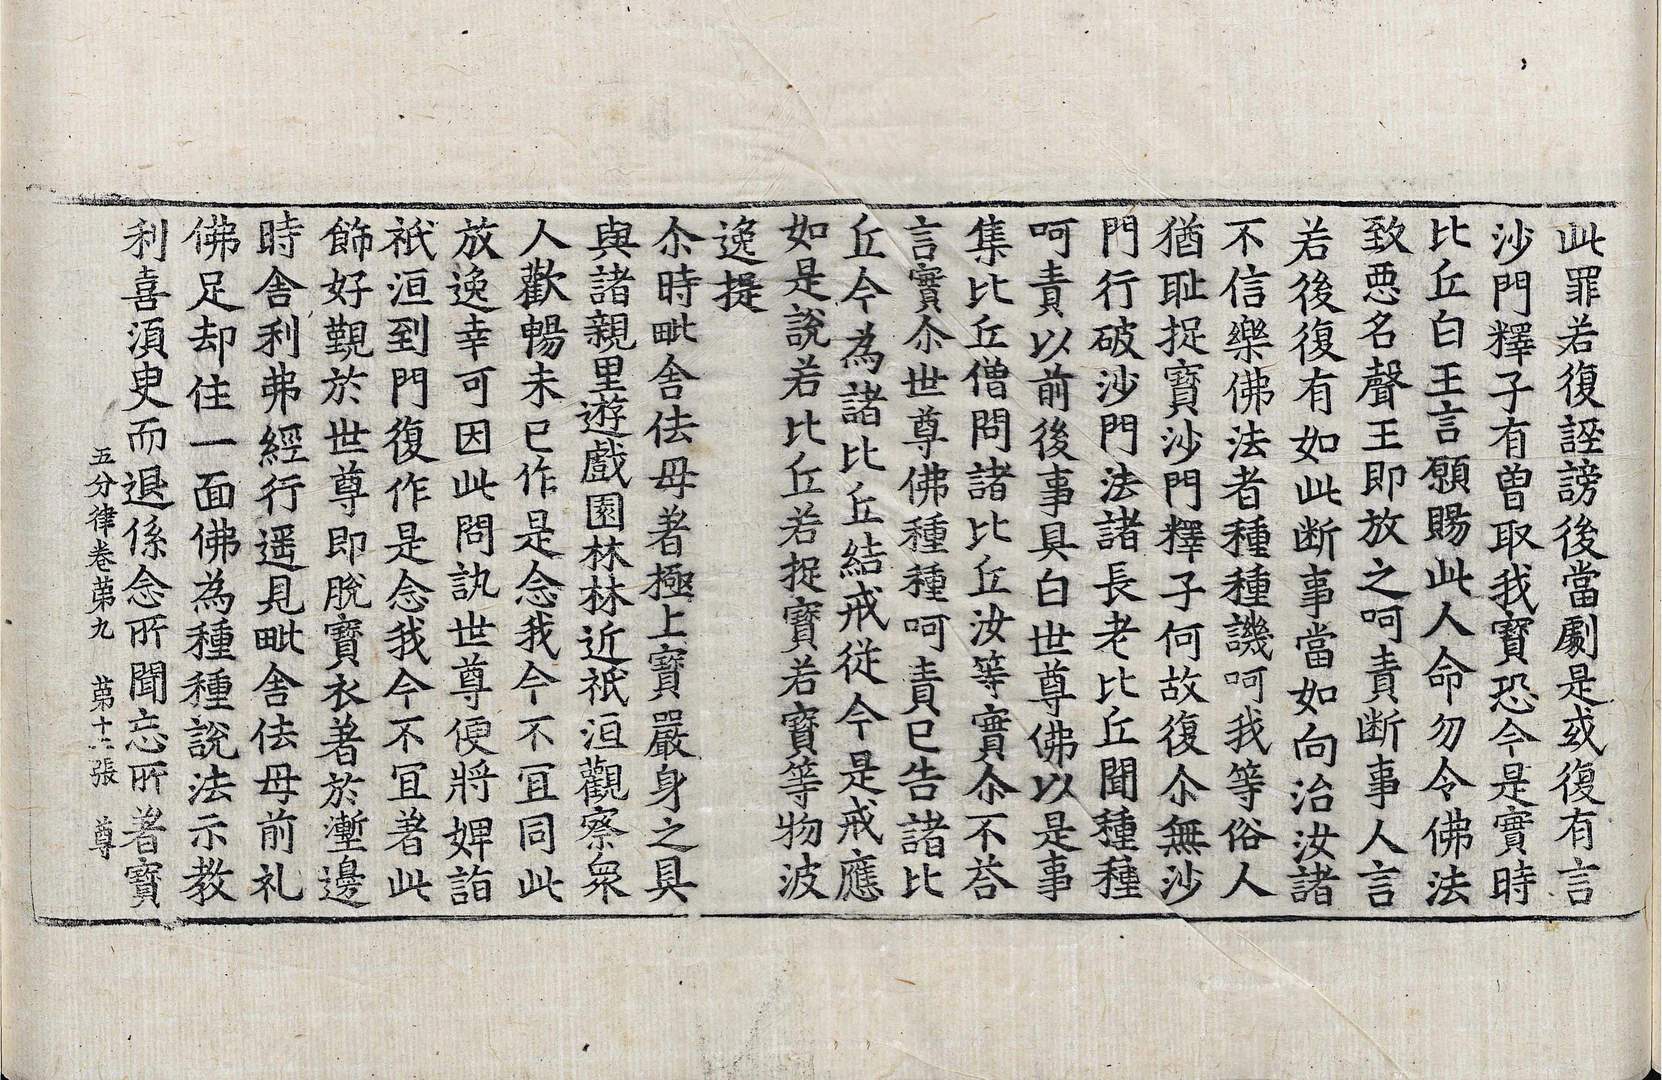 此罪若復誣謗後當劇是或復有言
沙門釋子有曾取我寶恐今是實時
比丘白王言願賜此人命勿令佛法
致惡名聲王即放之呵責断事人言
若後復有如此断事當如向治汝諸
不信樂佛法者種種譏呵我等俗人
猶耻捉寶沙門釋子何故復尒無沙
門行破沙門法諸長老比丘聞種種
呵責以前後事具白世尊佛以是事
集比丘僧問諸比丘汝等實尒不荅
言實尒世尊佛種種呵責已告諸比
丘今為諸比丘結戒從今是戒應
如是說若比丘若捉寶若寶等物波
逸提
尒時毗舍佉母著極上寶嚴身之具
與諸親里遊戲園林林近祇洹觀察衆
人歡暢未已作是念我今不宜同此
放逸幸可因此問訊世尊便將婢詣
祇洹到門復作是念我今不宜著此
飾好覲於世尊即脫寶衣著於塹邊
時舍利弗經行遥見毗舍佉母前礼
佛足却住一面佛為種種說法示教
利喜須臾而退係念所聞忘所著寶
五分律卷苐九 苐十六張 尊